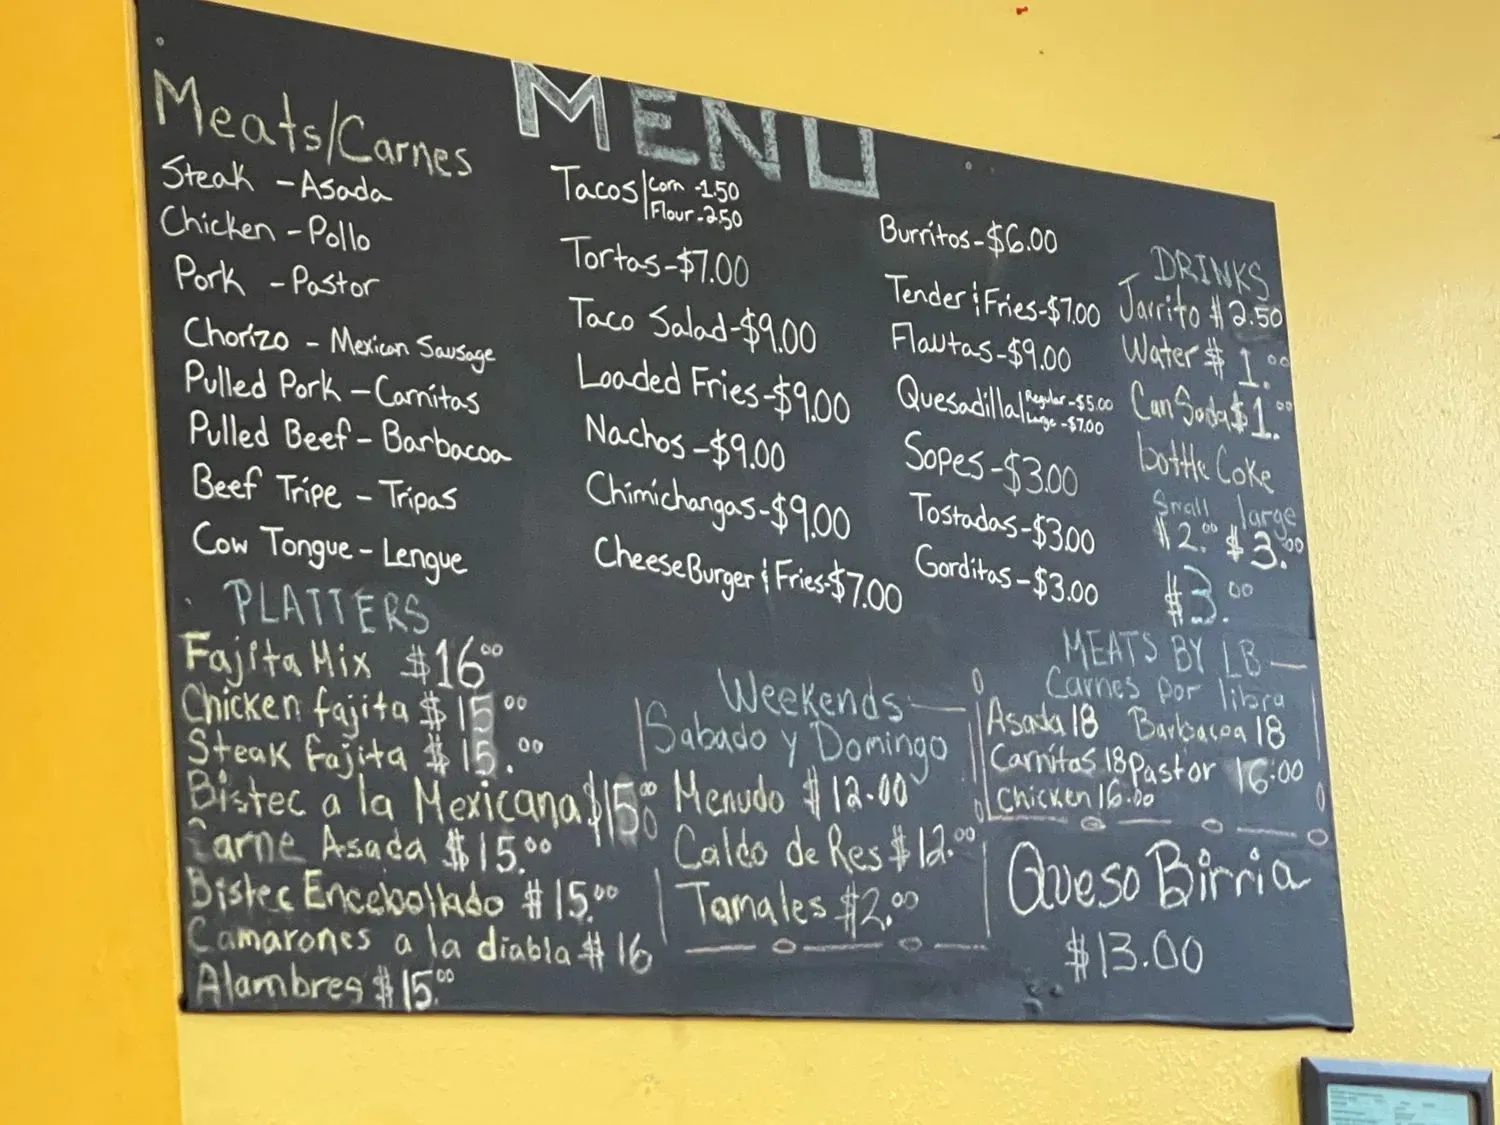 MENU
Meats/Carnes
Steak - Asada
Chicken - Pollo
Pork - Pastor
Chorizo - Mexican Sausage
Pulled Pork - Carnitas
Pulled Beef - Barbacoa
Beef Tripe - Tripas
Cow Tongue - Lengue
Tacos | Corn - 1.50
Flour - 2.50
Tortas - $7.00
Taco Salad - $9.00
Loaded Fries - $9.00
Nachos - $9.00
Chimichangas - $9.00
CheeseBurger & Fries - $7.00
Burritos - $6.00
Tender & Fries - $7.00
Flautas - $9.00
Quesadilla | Regular - $5.00
Large - $7.00
Sopes - $3.00
Tostadas - $3.00
Gorditas - $3.00
DRINKS
Jarrito $2.50
Water $1.00
Can Soda $1.00
bottle Coke
Small large
$2.00 $3.00
$3.00
PLATTERS
Fajita Mix $16.00
Chicken fajita $15.00
Steak fajita $15.00
Bistec a la Mexicana $15.00
Carne Asada $15.00
Bistec Encebollado $15.00
Camarones a la diabla $16
Alambres $15.00
Weekends
Sabado y Domingo
Menudo $12.00
Caldo de Res $12.00
Tamales $2.00
MEATS BY LB
Carnes por libra
Asada 18 Barbacoa 18
Carnitas 18 Pastor 16.00
Chicken 16.00
Queso Birria
$13.00